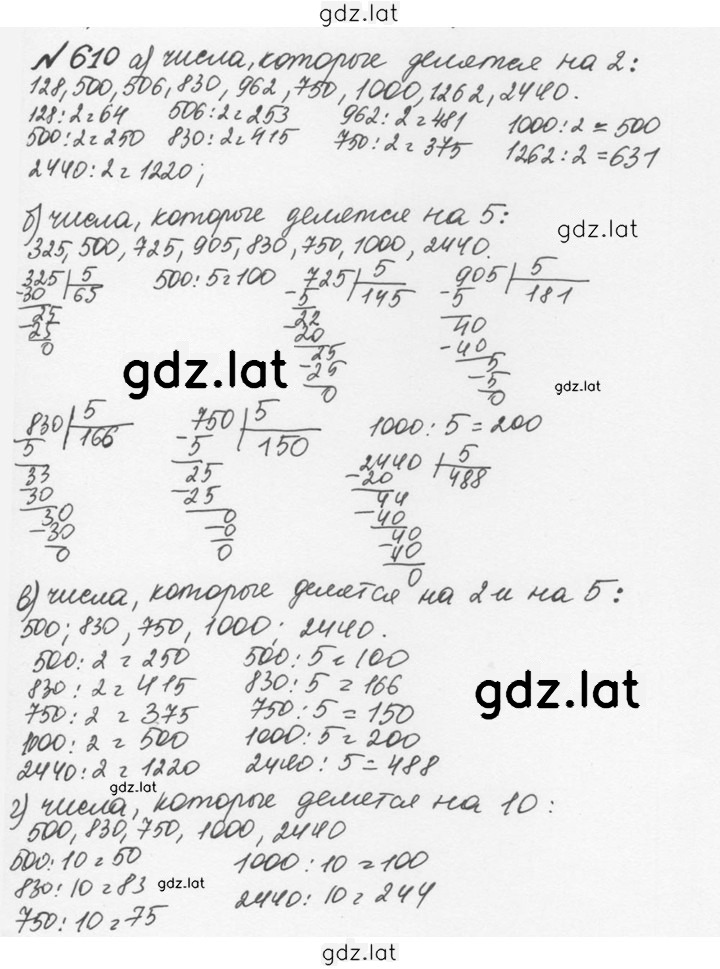 gdz.lat
№610 а) числа, которые делятся на 2:
128, 500, 506, 830, 962, 750, 1000, 1262, 2440.
128:2=64 506:2=253 962:2=481 1000:2=500
500:2=250 830:2=415 750:2=375 1262:2=631
2440:2=1220;
б) числа, которые делятся на 5:
gdz.lat
325, 500, 725, 905, 830, 750, 1000, 2440.
325 | 5 500:5=100 725 | 5 905 | 5
-30 65 -5 145 -5 181
25 22 40
-25 -20 -40
0 25 5
-25 -5
0 0
gdz.lat
gdz.lat
830 | 5 750 | 5 1000:5=200
5 166 -5 150 2440 | 5
33 25 -20 488
30 -25 44
30 0 -40
-30 -0 40
0 0 -40
0
в) числа, которые делятся на 2 и на 5:
500; 830, 750, 1000; 2440.
500:2=250 500:5=100
830:2=415 830:5=166
gdz.lat
750:2=375 750:5=150
1000:2=500 1000:5=200
2440:2=1220 2440:5=488
gdz.lat
г) числа, которые делятся на 10:
500, 830, 750, 1000, 2440
500:10=50 1000:10=100
830:10=83 gdz.lat 2440:10=244
750:10=75
gdz.lat